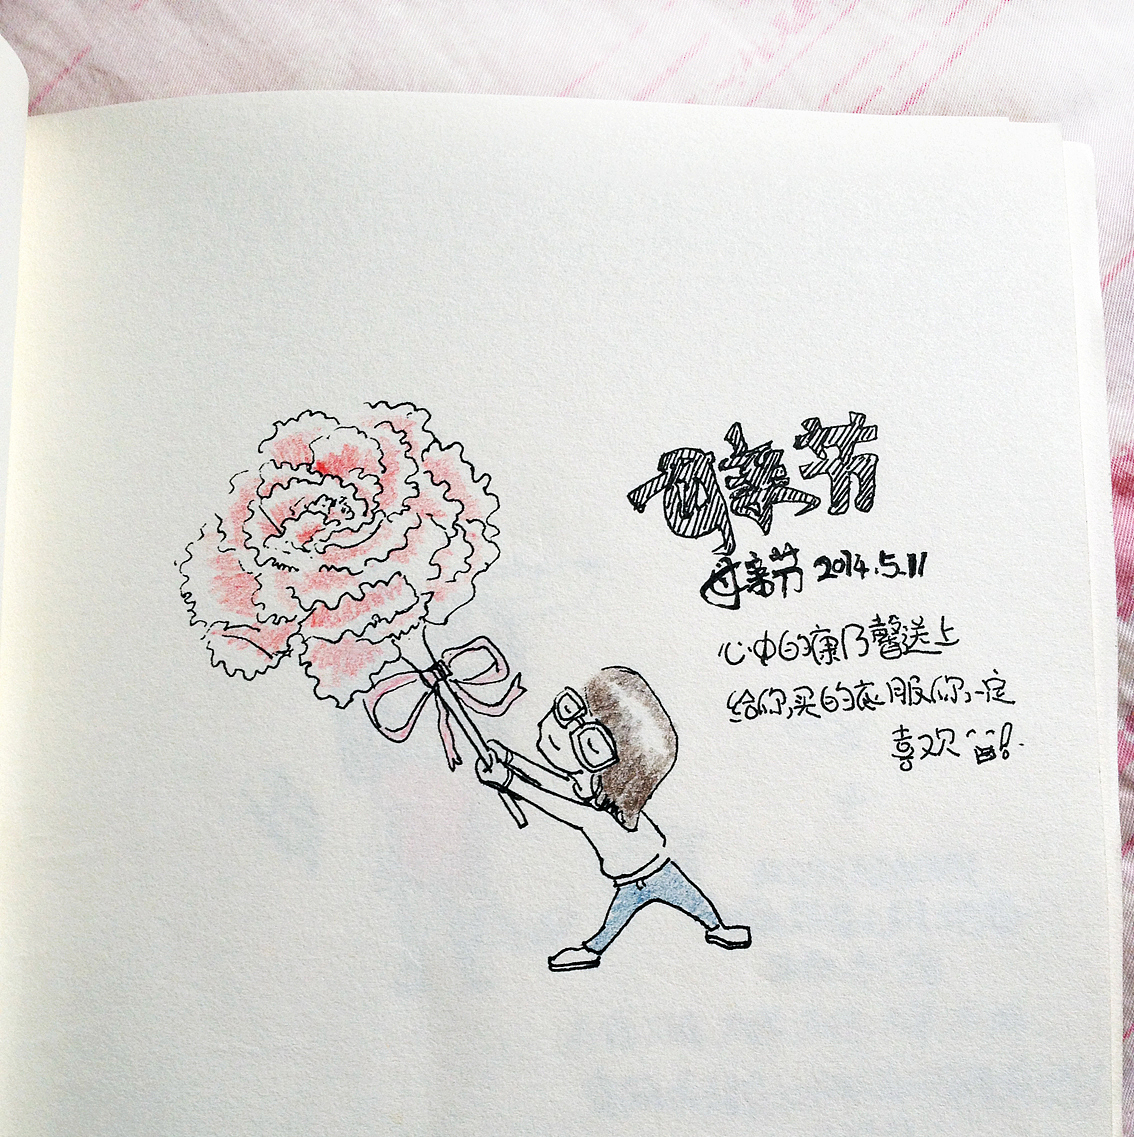 母亲节
母亲节 2014.5.11
心中的康乃馨送上
给你买的衣服你一定
喜欢